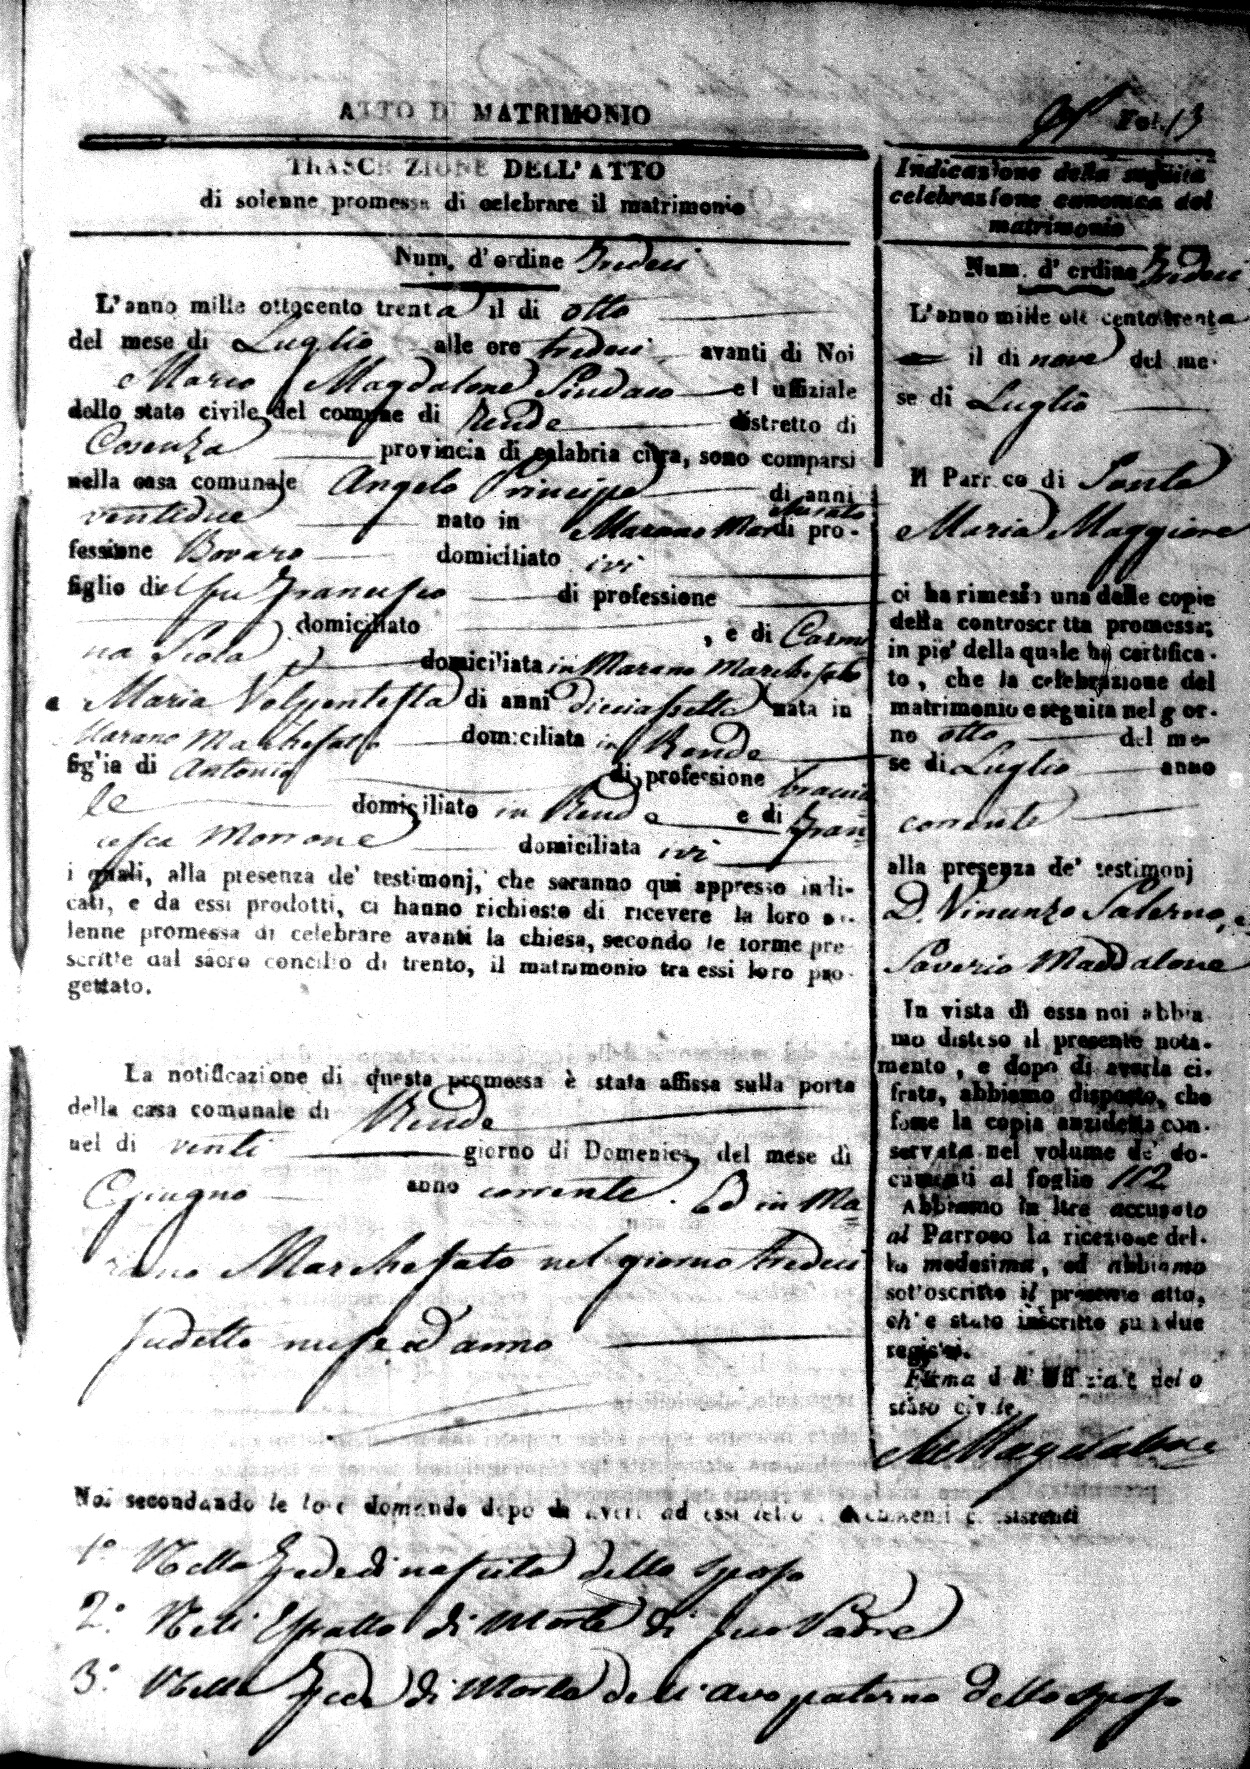 ATTO DI MATRIMONIO
Fol. 13
TRASCRIZIONE DELL'ATTO
di solenne promessa di celebrare il matrimonio
Num. d'ordine Tredeci
L'anno mille ottocento trenta il di otto
del mese di Luglio alle ore tredeci avanti di Noi
Mario Magdalone Sindaco ed uffiziale
dello stato civile del comune di Rende distretto di
Cosenza provincia di calabria citra, sono comparsi
nella casa comunale Angelo Principe di anni
ventidue nato in Marano Mar di pro-
fessione Bovaro domiciliato ivi
figlio del fu Francesco di professione
domiciliato , e di Carmi
na Scola domiciliata in Marano Marchesato
e Maria Volpentesta di anni dicciassette nata in
Marano Marchesato domiciliata in Rende
figlia di Antonio di professione braccia
le domiciliato in Rende e di Fran
cesca Morrone domiciliata ivi
i quali, alla presenza de' testimonj, che saranno qui appresso indi-
cati, e da essi prodotti, ci hanno richiesto di ricevere la loro so-
lenne promessa di celebrare avanti la chiesa, secondo le forme pre-
scritte dal sacro concilio di trento, il matrimonio tra essi loro pro-
gettato.
La notificazione di questa promessa è stata affissa sulla porta
della casa comunale di Rende
nel di venti giorno di Domenica del mese di
Giugno anno corrente. Ed in Ma
rano Marchesato nel giorno tredeci
sudetto mese ed anno
Indicazione della seguita
celebrazione canonica del
matrimonio
Num. d'ordine Tredeci
L'anno mille ottocento trenta
il di nove del me-
se di Luglio
Il Parroco di Santa
Maria Maggiore
ci ha rimesso una delle copie
della controscritta promessa;
in piè della quale ha certifica-
to, che la celebrazione del
matrimonio e seguita nel gior-
no otto del me-
se di Luglio anno
corrente
alla presenza de' testimonj
D. Vincenzo Salerno, e
Saverio Maddalone
In vista di essa noi abbia
mo disteso il presente nota-
mento, e dopo di averla ci-
frata, abbiamo disposto, che
fosse la copia anzidetta con-
servata nel volume de' do-
cumenti al foglio 112
Abbiamo in ltre accusato
al Parroco la ricezione del-
la medesima, ed abbiamo
sottoscritto il presente atto,
ch' e stato inscritto su i due
registri.
Firma dell' Uffiziale dello
stato civile.
Magdalone
Noi secondando le loro domande dopo di aver ad essi letto i documenti consistenti
1° Nella Fede di nascita dello sposo
2° Nell' Estratto di Morte di suo Padre
3° Nella Fede di Morte dell' avo paterno dello sposo